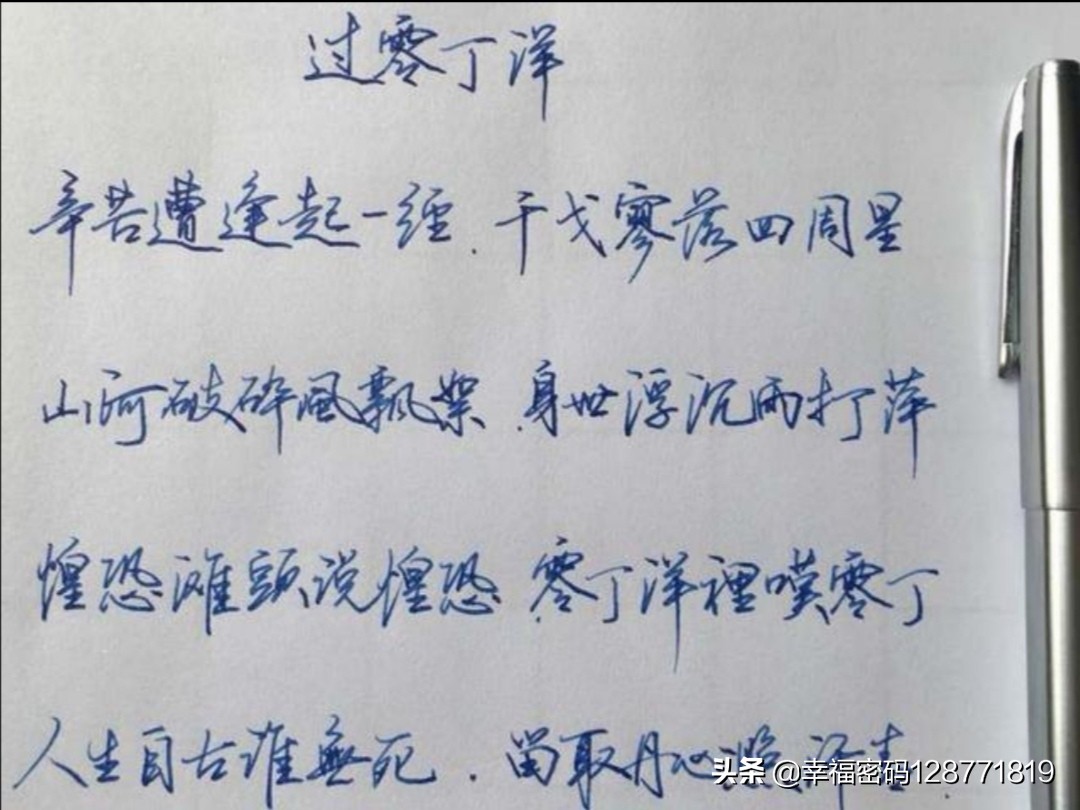 过零丁洋
辛苦遭逢起一经.干戈寥落四周星
山河破碎风飘絮.身世浮沉雨打萍
惶恐滩頭说惶恐.零丁洋裡嘆零丁
人生自古谁無死.留取丹心
头条 @幸福密码128771819